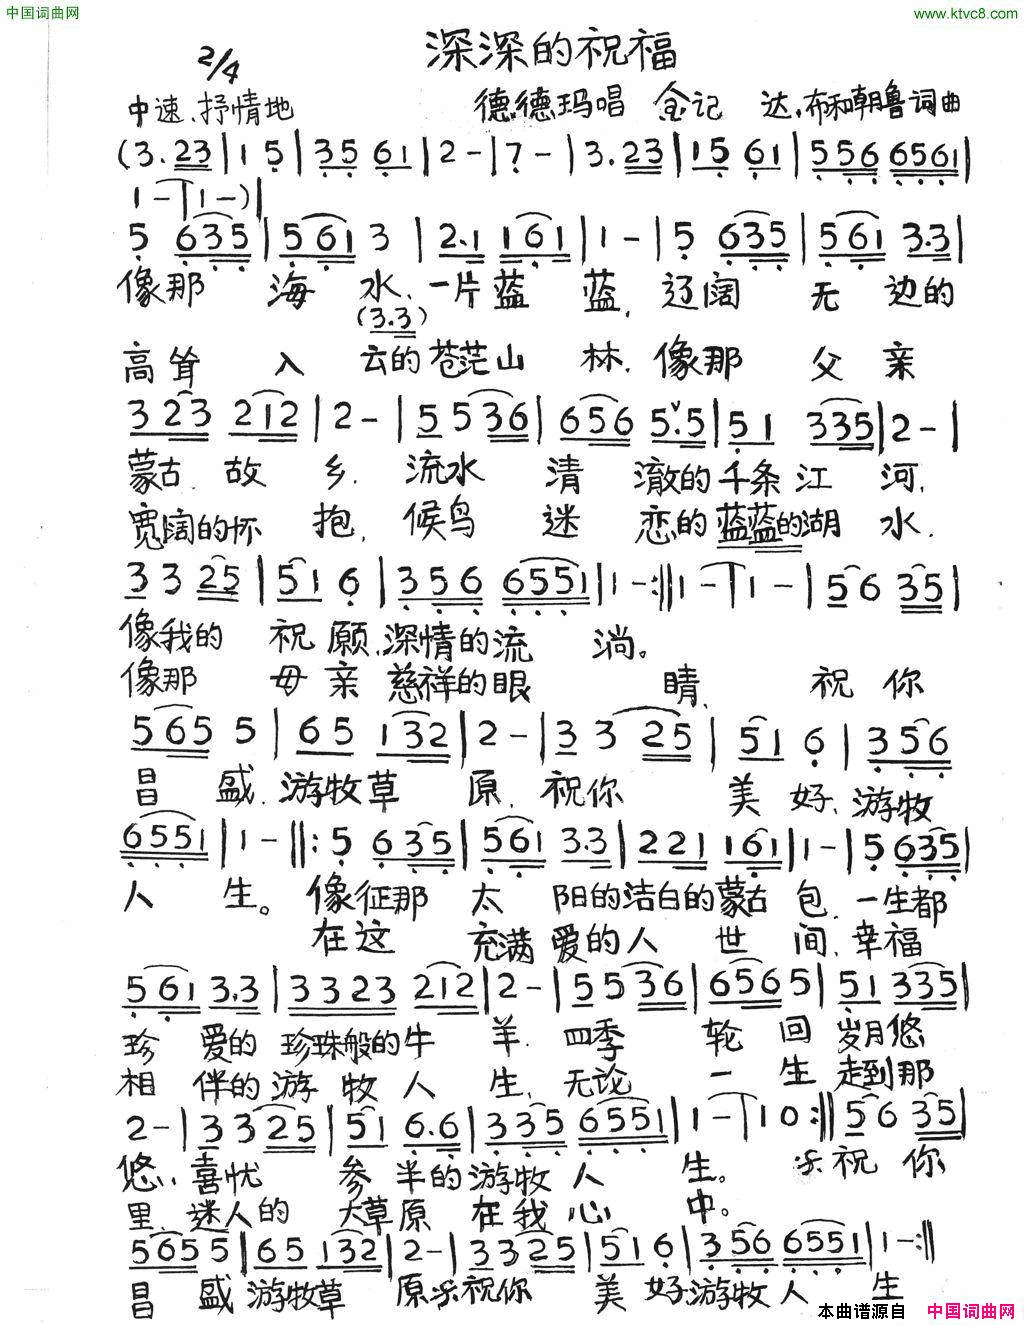 中国词曲网
www.ktvc8.com
深深的祝福
2/4
中速、抒情地 德德玛唱 金记 达、布和朝鲁词曲
(3.23|1 5|35 61|2-|7-|3.23|15 61|556 6561|
1-|1-)|
5 635|561 3|2.1 161|1-|5 635|561 3.3|
像那 海 水、一片蓝 蓝,辽阔 无 边的
(3.3)
高耸 入 云的苍茫山 林.像那 父 亲
323 212|2-|5 536|656 5.5|51 335|2-|
蒙古 故 乡.流水 清 澈的千条江 河,
宽阔的怀 抱,候鸟 迷 恋的蓝蓝的湖 水.
3 3 25|51 6|356 6551|1-:||1-|1-|56 35|
像我的 祝愿,深情的流 淌。
像那 母亲 慈祥的眼 睛, 祝 你
565 5|65 132|2-|3 3 25|51 6|356
昌 盛,游牧草 原,祝你 美 好,游牧
6551|1-||:5 635|561 3.3|221 161|1-|5 635|
人 生。像征那 太 阳的洁白的蒙古 包,一生都
在这 充满爱的人 世 间,幸福
561 3.3|3323 212|2-|5 536|6565|51 335|
珍 爱的珍珠般的牛 羊.四季 轮 回 岁月悠
相 伴的游 牧 人 生,无论 一 生 走到那
2-|3 3 25|51 6.6|335 6551|1-|10:||56 35|
悠,喜忧 参 半的游牧人 生。 祝 你
里,迷人的 大草原 在我心 中。
5655|65 132|2-|3 3 25|51 6|356 6551|1-:||
昌 盛 游牧草 原 祝你 美 好游牧人 生
本曲谱源自 中国词曲网